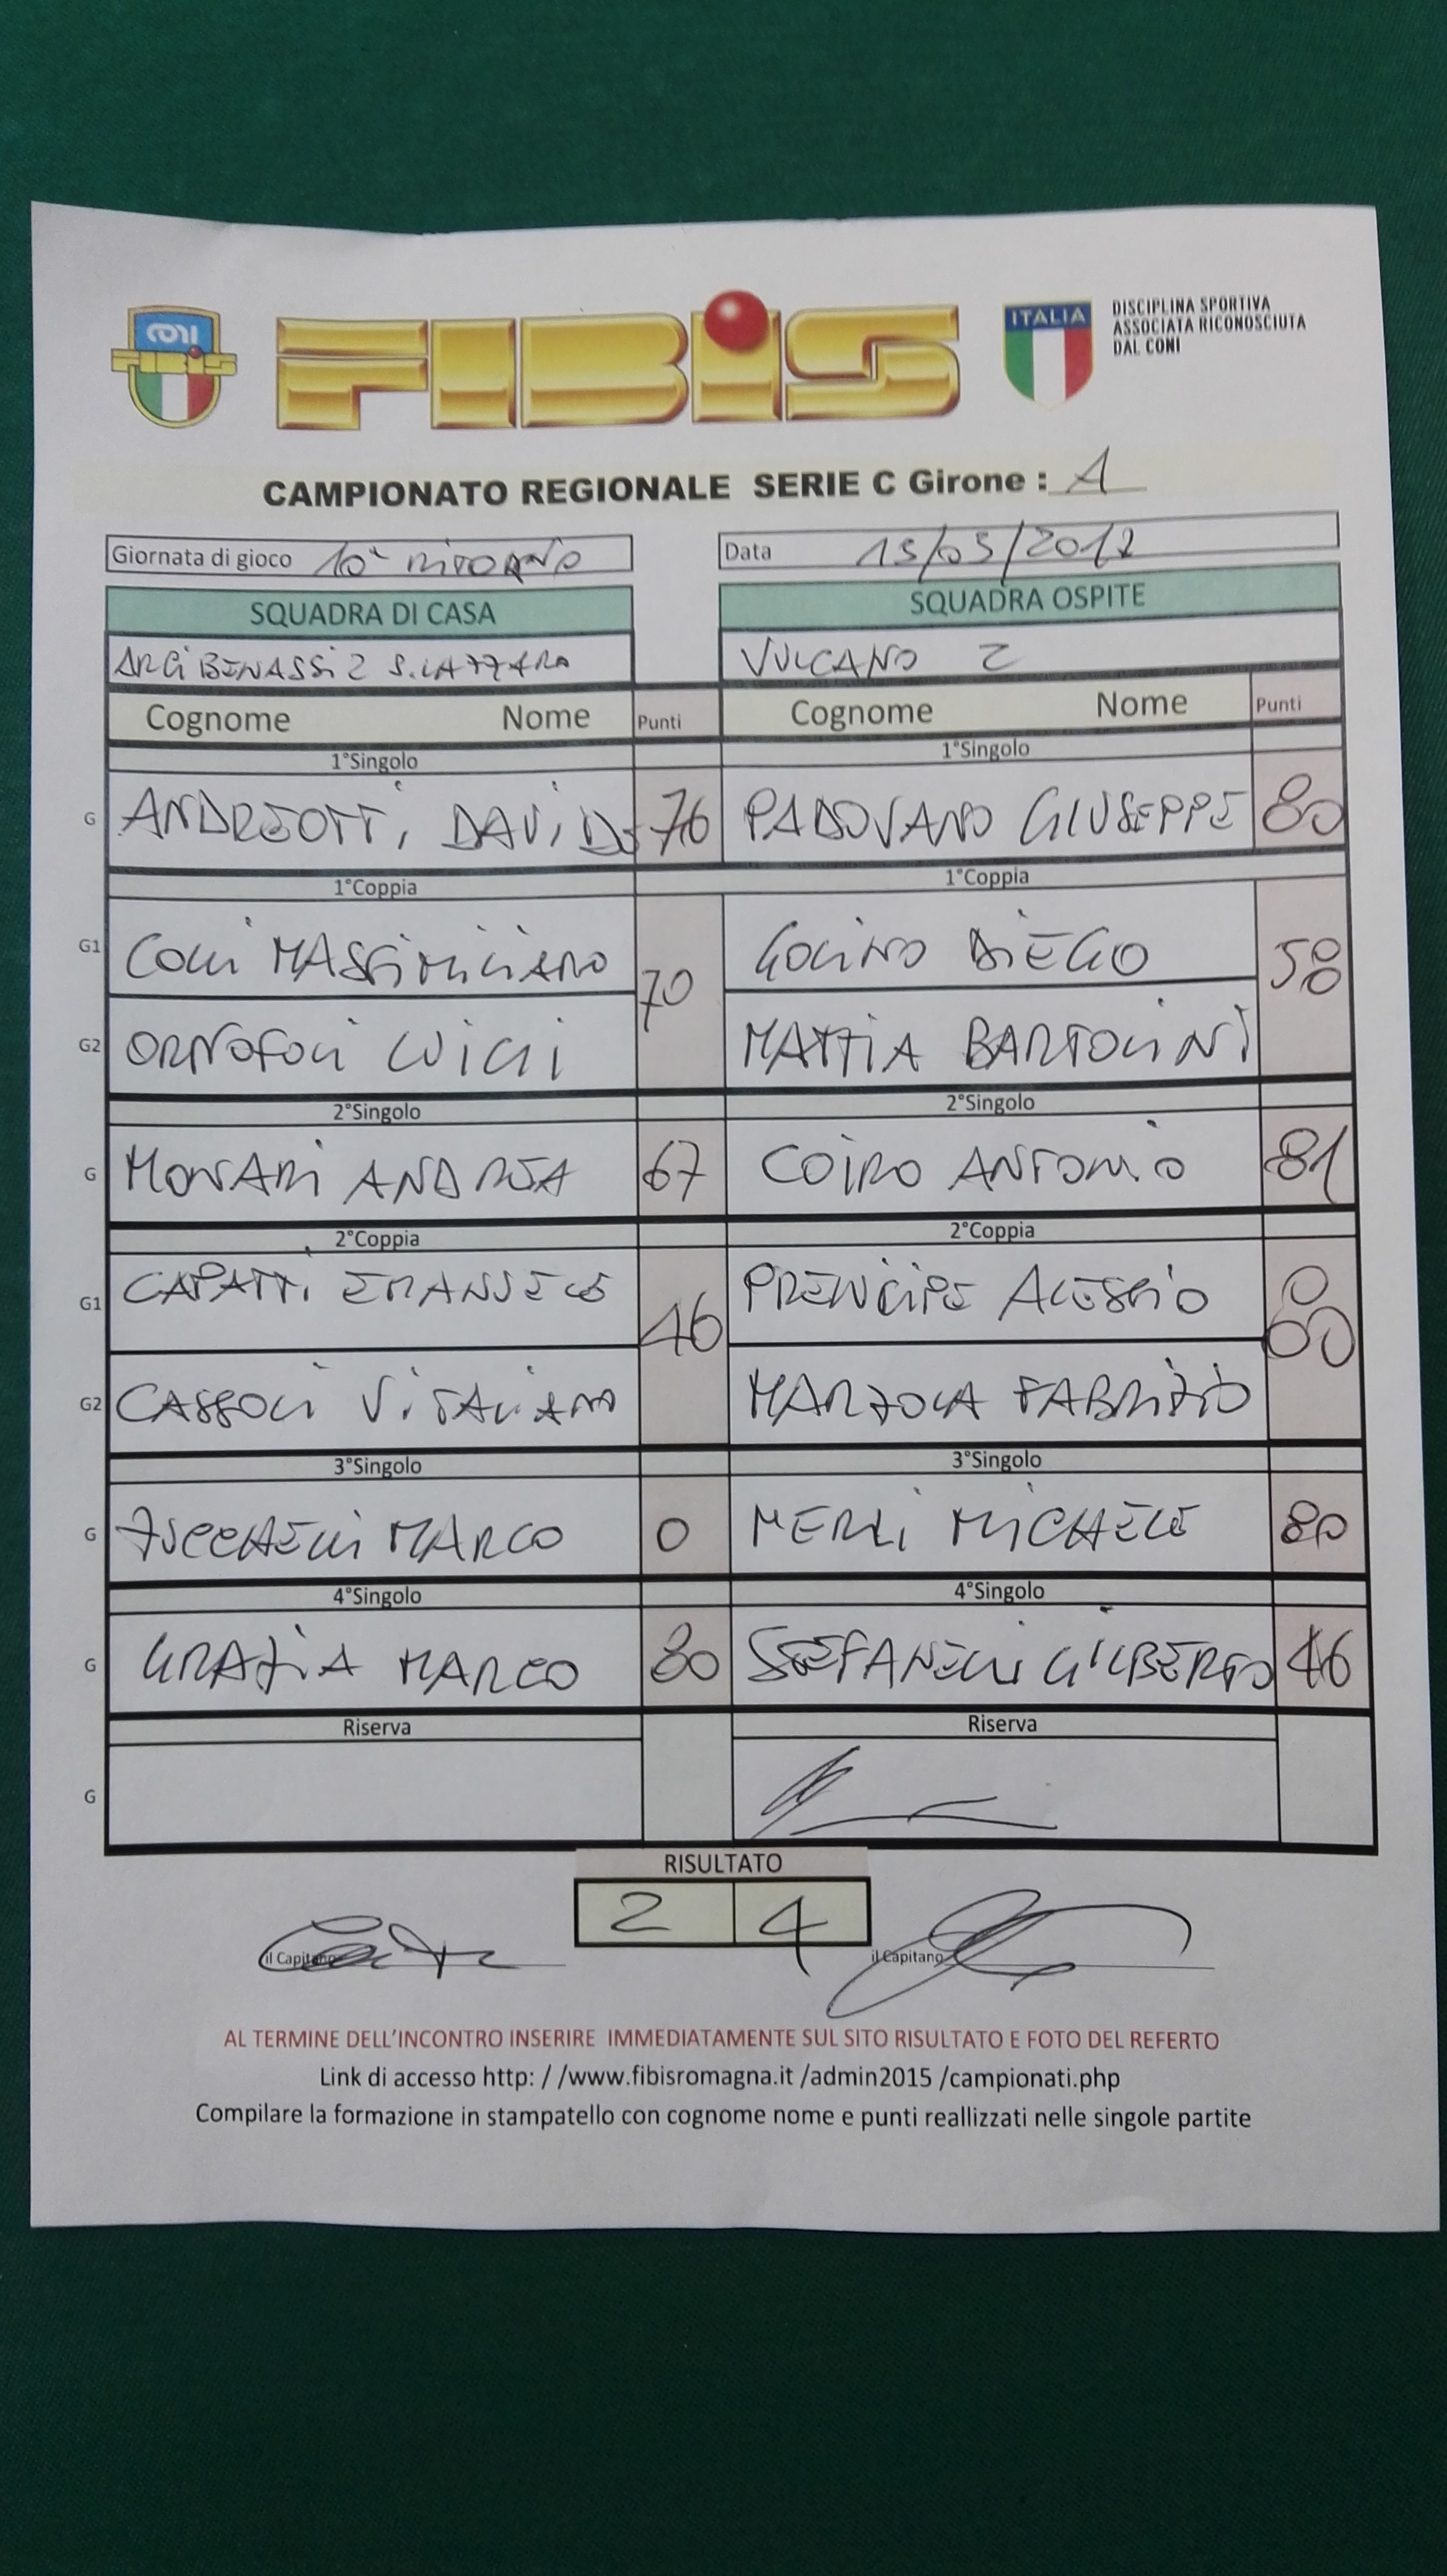 CONI
FIBIS
FIBIS
ITALIA
DISCIPLINA SPORTIVA
ASSOCIATA RICONOSCIUTA
DAL CONI
CAMPIONATO REGIONALE SERIE C Girone : A
Giornata di gioco 10ª RITORNO
Data 15/05/2017
SQUADRA DI CASA
SQUADRA OSPITE
ARCI BENASSI 2 S. LAZZARO
VULCANO 2
Cognome Nome Punti
Cognome Nome Punti
1°Singolo
1°Singolo
G ANDREOTTI DAVIDE 76
PADOVANO GIUSEPPE 80
1°Coppia
1°Coppia
G1 COLLI MASSIMILIANO
70
GOLINO DIEGO
58
G2 LUIGI
MATTIA BARTOLINI
2°Singolo
2°Singolo
G MONARI ANDREA 67
COIRO ANTONIO 81
2°Coppia
2°Coppia
G1 CAPATTI EMANUELE
46
PRENCIPE ALESSIO
60
G2 CASSOLI VITALIANO
MARZOLA FABRIZIO
3°Singolo
3°Singolo
G ZUCCHELLI MARCO 0
MERLI MICHELE 80
4°Singolo
4°Singolo
G GRAZIA MARCO 80
STEFANELLI GILBERTO 46
Riserva
Riserva
G
RISULTATO
2 4
il Capitano
il Capitano
AL TERMINE DELL'INCONTRO INSERIRE IMMEDIATAMENTE SUL SITO RISULTATO E FOTO DEL REFERTO
Link di accesso http: / /www.fibisromagna.it /admin2015 /campionati.php
Compilare la formazione in stampatello con cognome nome e punti reallizzati nelle singole partite